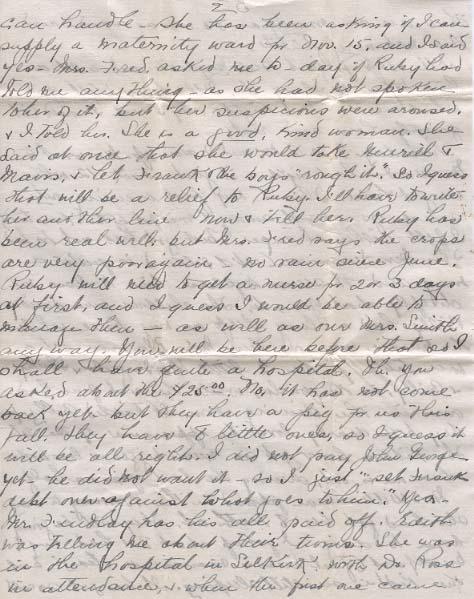 2
can handle. She has been asking if I can
supply a maternity ward for Nov. 15, and I said
yes - Mrs. Fred asked me to-day if Ruby had
told me anything - as she had not spoken
to her of it, but her suspicions were aroused,
& I told her. She is a good, kind woman. She
said at once that she would take Muriel &
Mavis, & let Frank & the boys "rough it". So I guess
that will be a relief to Ruby. I'll have to write
her another line now & tell her. Ruby has
been real well but Mrs. Fred says the crops
are very poor again no rain since June.
Ruby will need to get a nurse for 2 or 3 days
at first, and I guess I would be able to
manage then - as well as our Mrs. Smith
any way. You will be here before that so I
shall have quite a hospital. Oh. you
asked about the $25.00. No, it has not come
back yet but they have a pig for us this
fall. They have 8 little ones, so I guess it
will be all right. I did not pay John George
yet - he did not want it - so I just "set Frank's
debt over against what goes to him." Yes.
Mr. Findlay has his all paid off. Edith
was telling me about their twins. She was
in the hospital in Selkirk with Dr. Ross
in attendance, & when the first one came